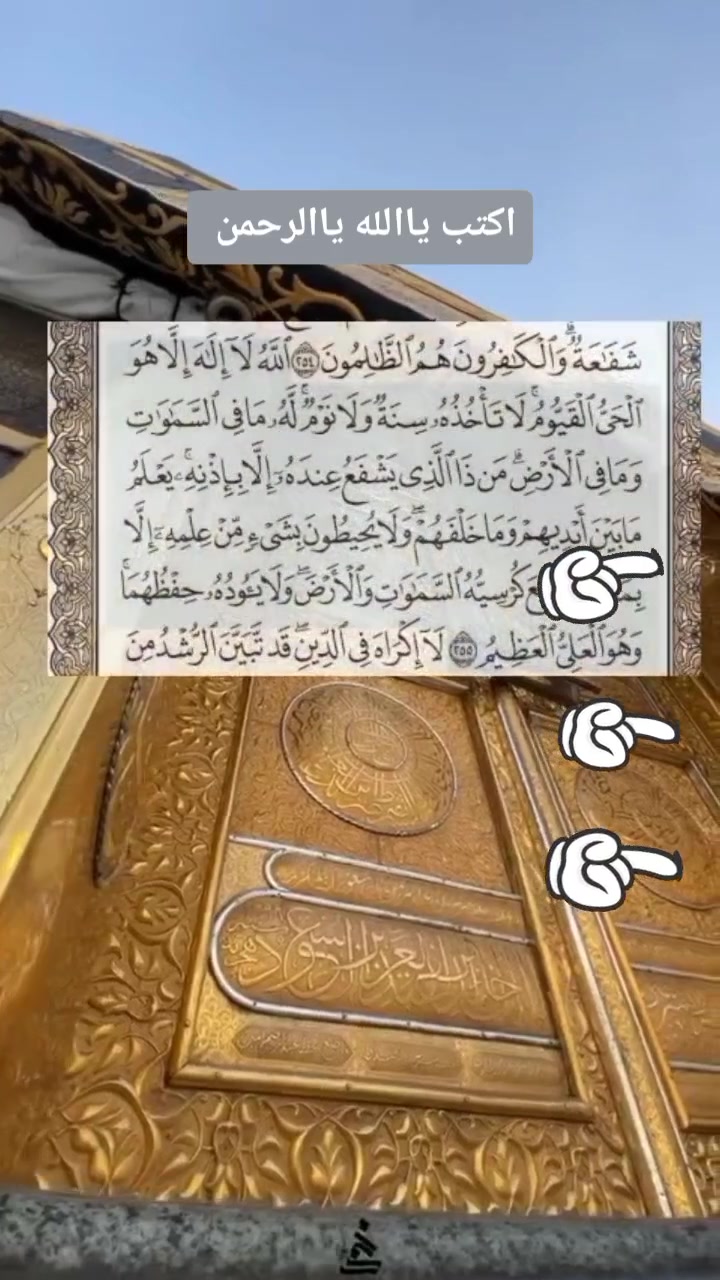 اكتب ياالله ياالرحمن
شَفَٰعَةٌۗ وَٱلْكَٰفِرُونَ هُمُ ٱلظَّٰلِمُونَ ٢٥٤ ٱللَّهُ لَآ إِلَٰهَ إِلَّا هُوَ
ٱلْحَىُّ ٱلْقَيُّومُۚ لَا تَأْخُذُهُۥ سِنَةٌ وَلَا نَوْمٌۚ لَّهُۥ مَا فِى ٱلسَّمَٰوَٰتِ
وَمَا فِى ٱلْأَرْضِۗ مَن ذَا ٱلَّذِى يَشْفَعُ عِندَهُۥٓ إِلَّا بِإِذْنِهِۦۚ يَعْلَمُ
مَا بَيْنَ أَيْدِيهِمْ وَمَا خَلْفَهُمْۖ وَلَا يُحِيطُونَ بِشَىْءٍ مِّنْ عِلْمِهِۦٓ إِلَّا
كُرْسِيُّهُ ٱلسَّمَٰوَٰتِ وَٱلْأَرْضَۖ وَلَا يَـُٔودُهُۥ حِفْظُهُمَاۚ
وَهُوَ ٱلْعَلِىُّ ٱلْعَظِيمُ ٢٥٥ لَآ إِكْرَاهَ فِى ٱلدِّينِۖ قَد تَّبَيَّنَ ٱلرُّشْدُ مِنَ